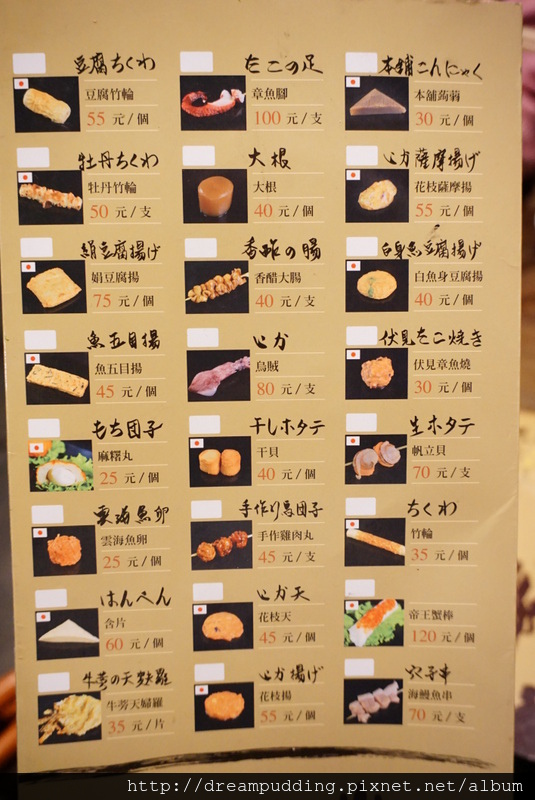 豆腐ちくわ
豆腐竹輪
55 元/個
たこの足
章魚腳
100 元/支
本舗こんにゃく
本舖蒟蒻
30 元/個
牡丹ちくわ
牡丹竹輪
50 元/支
大根
大根
40 元/個
いか薩摩揚げ
花枝薩摩揚
55 元/個
絹豆腐揚げ
娟豆腐揚
75 元/個
香酢の腸
香醋大腸
40 元/支
白身魚豆腐揚げ
白魚身豆腐揚
40 元/個
魚五目揚
魚五目揚
45 元/個
いか
烏賊
80 元/支
伏見たこ焼き
伏見章魚燒
30 元/個
もち団子
麻糬丸
25 元/個
干しホタテ
干貝
40 元/個
生ホタテ
帆立貝
70 元/支
雲海魚卵
雲海魚卵
25 元/個
手作り鳥団子
手作雞肉丸
45 元/支
ちくわ
竹輪
35 元/個
はんぺん
含片
60 元/個
いか天
花枝天
45 元/個
帝王蟹棒
120 元/個
牛蒡の天麩羅
牛蒡天婦羅
35 元/片
いか揚げ
花枝揚
55 元/個
穴子串
海鰻魚串
70 元/支
http://dreampudding.pixnet.net/album